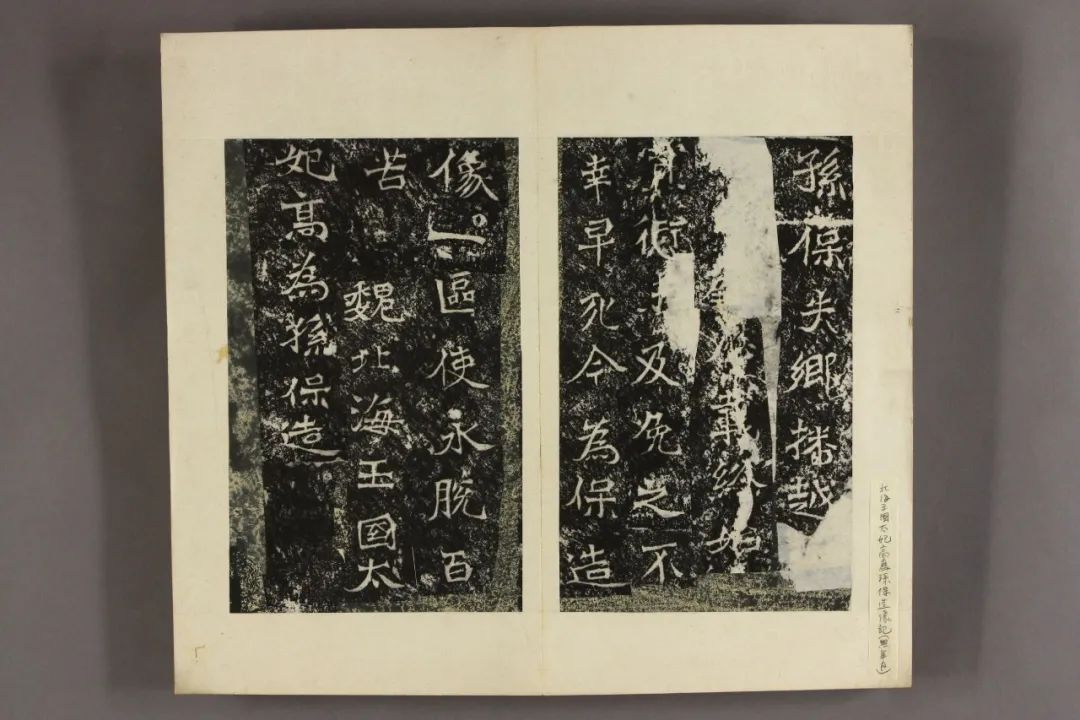 孫保失鄉播越
載純如
術及免之不
幸早死今為保造
像一區使永脫百
苦 魏北海王國太
妃高為孫保造
北海王國太妃高為孫保造像記（無年月）